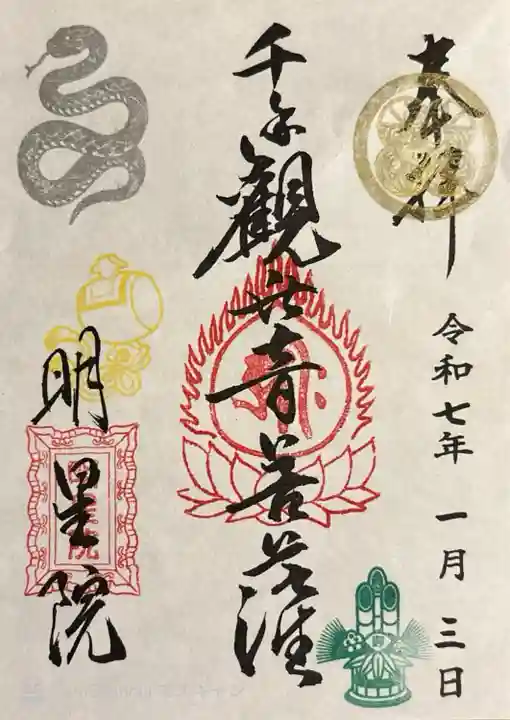 奉拝
令和七年 一月 三日
千手觀世音菩薩
明星院